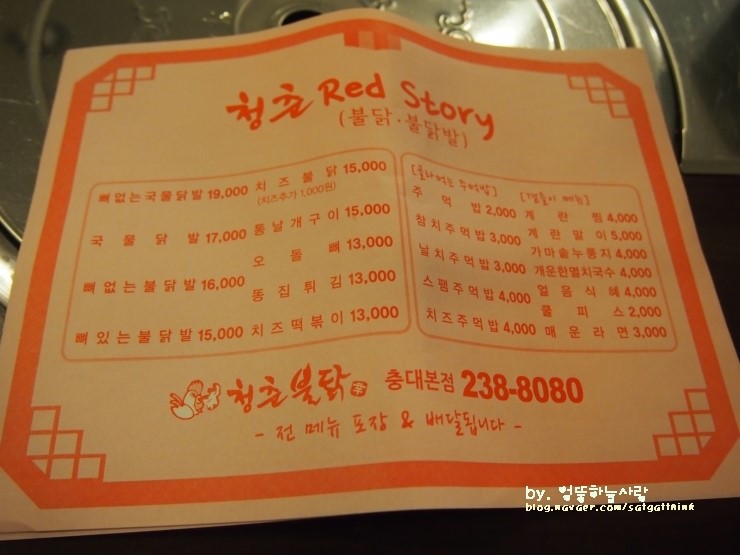 청춘 Red Story
(불닭·불닭발)
뼈없는국물닭발 19,000
국물닭발 17,000
뼈없는불닭발 16,000
뼈있는불닭발 15,000
치즈불닭 15,000
(치즈추가 1,000원)
통날개구이 15,000
오돌뼈 13,000
똥집튀김 13,000
치즈떡볶이 13,000
[골라먹는 주먹밥]
주먹밥 2,000
참치주먹밥 3,000
날치주먹밥 3,000
스팸주먹밥 4,000
치즈주먹밥 4,000
[곁들이 메뉴]
계란찜 4,000
계란말이 5,000
가마솥누룽지 4,000
개운한멸치국수 4,000
얼음식혜 4,000
쿨피스 2,000
매운라면 3,000
청춘불닭 충대본점 238-8080
- 전 메뉴 포장 & 배달됩니다 -
by. 엉뚱하늘사람
blog.naver.com/satgattnink